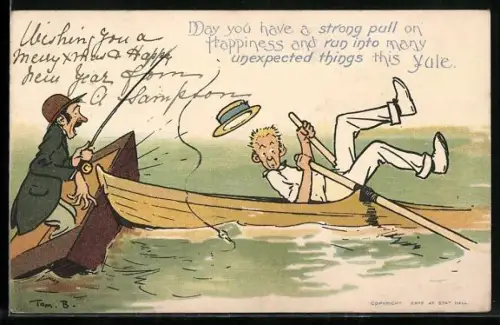 May you have a strong pull on
Happiness and run into many
unexpected things this Yule.
Wishing you a
Merry Xmas & Happy
New Year from
A Sampson
Tom. B.
COPYRIGHT. ENTD AT STAT. HALL.